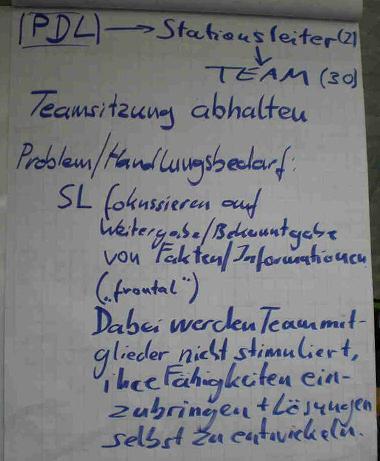 |PDL| → Stationsleiter(2)
↓
TEAM (30)
Teamsitzung abhalten
Problem/Handlungsbedarf:
SL fokussieren auf
Weitergabe/Bekanntgabe
von Fakten/Informationen
("frontal")
Dabei werden Teammit-
glieder nicht stimuliert,
ihre Fähigkeiten ein-
zubringen + Lösungen
selbst zu entwickeln.